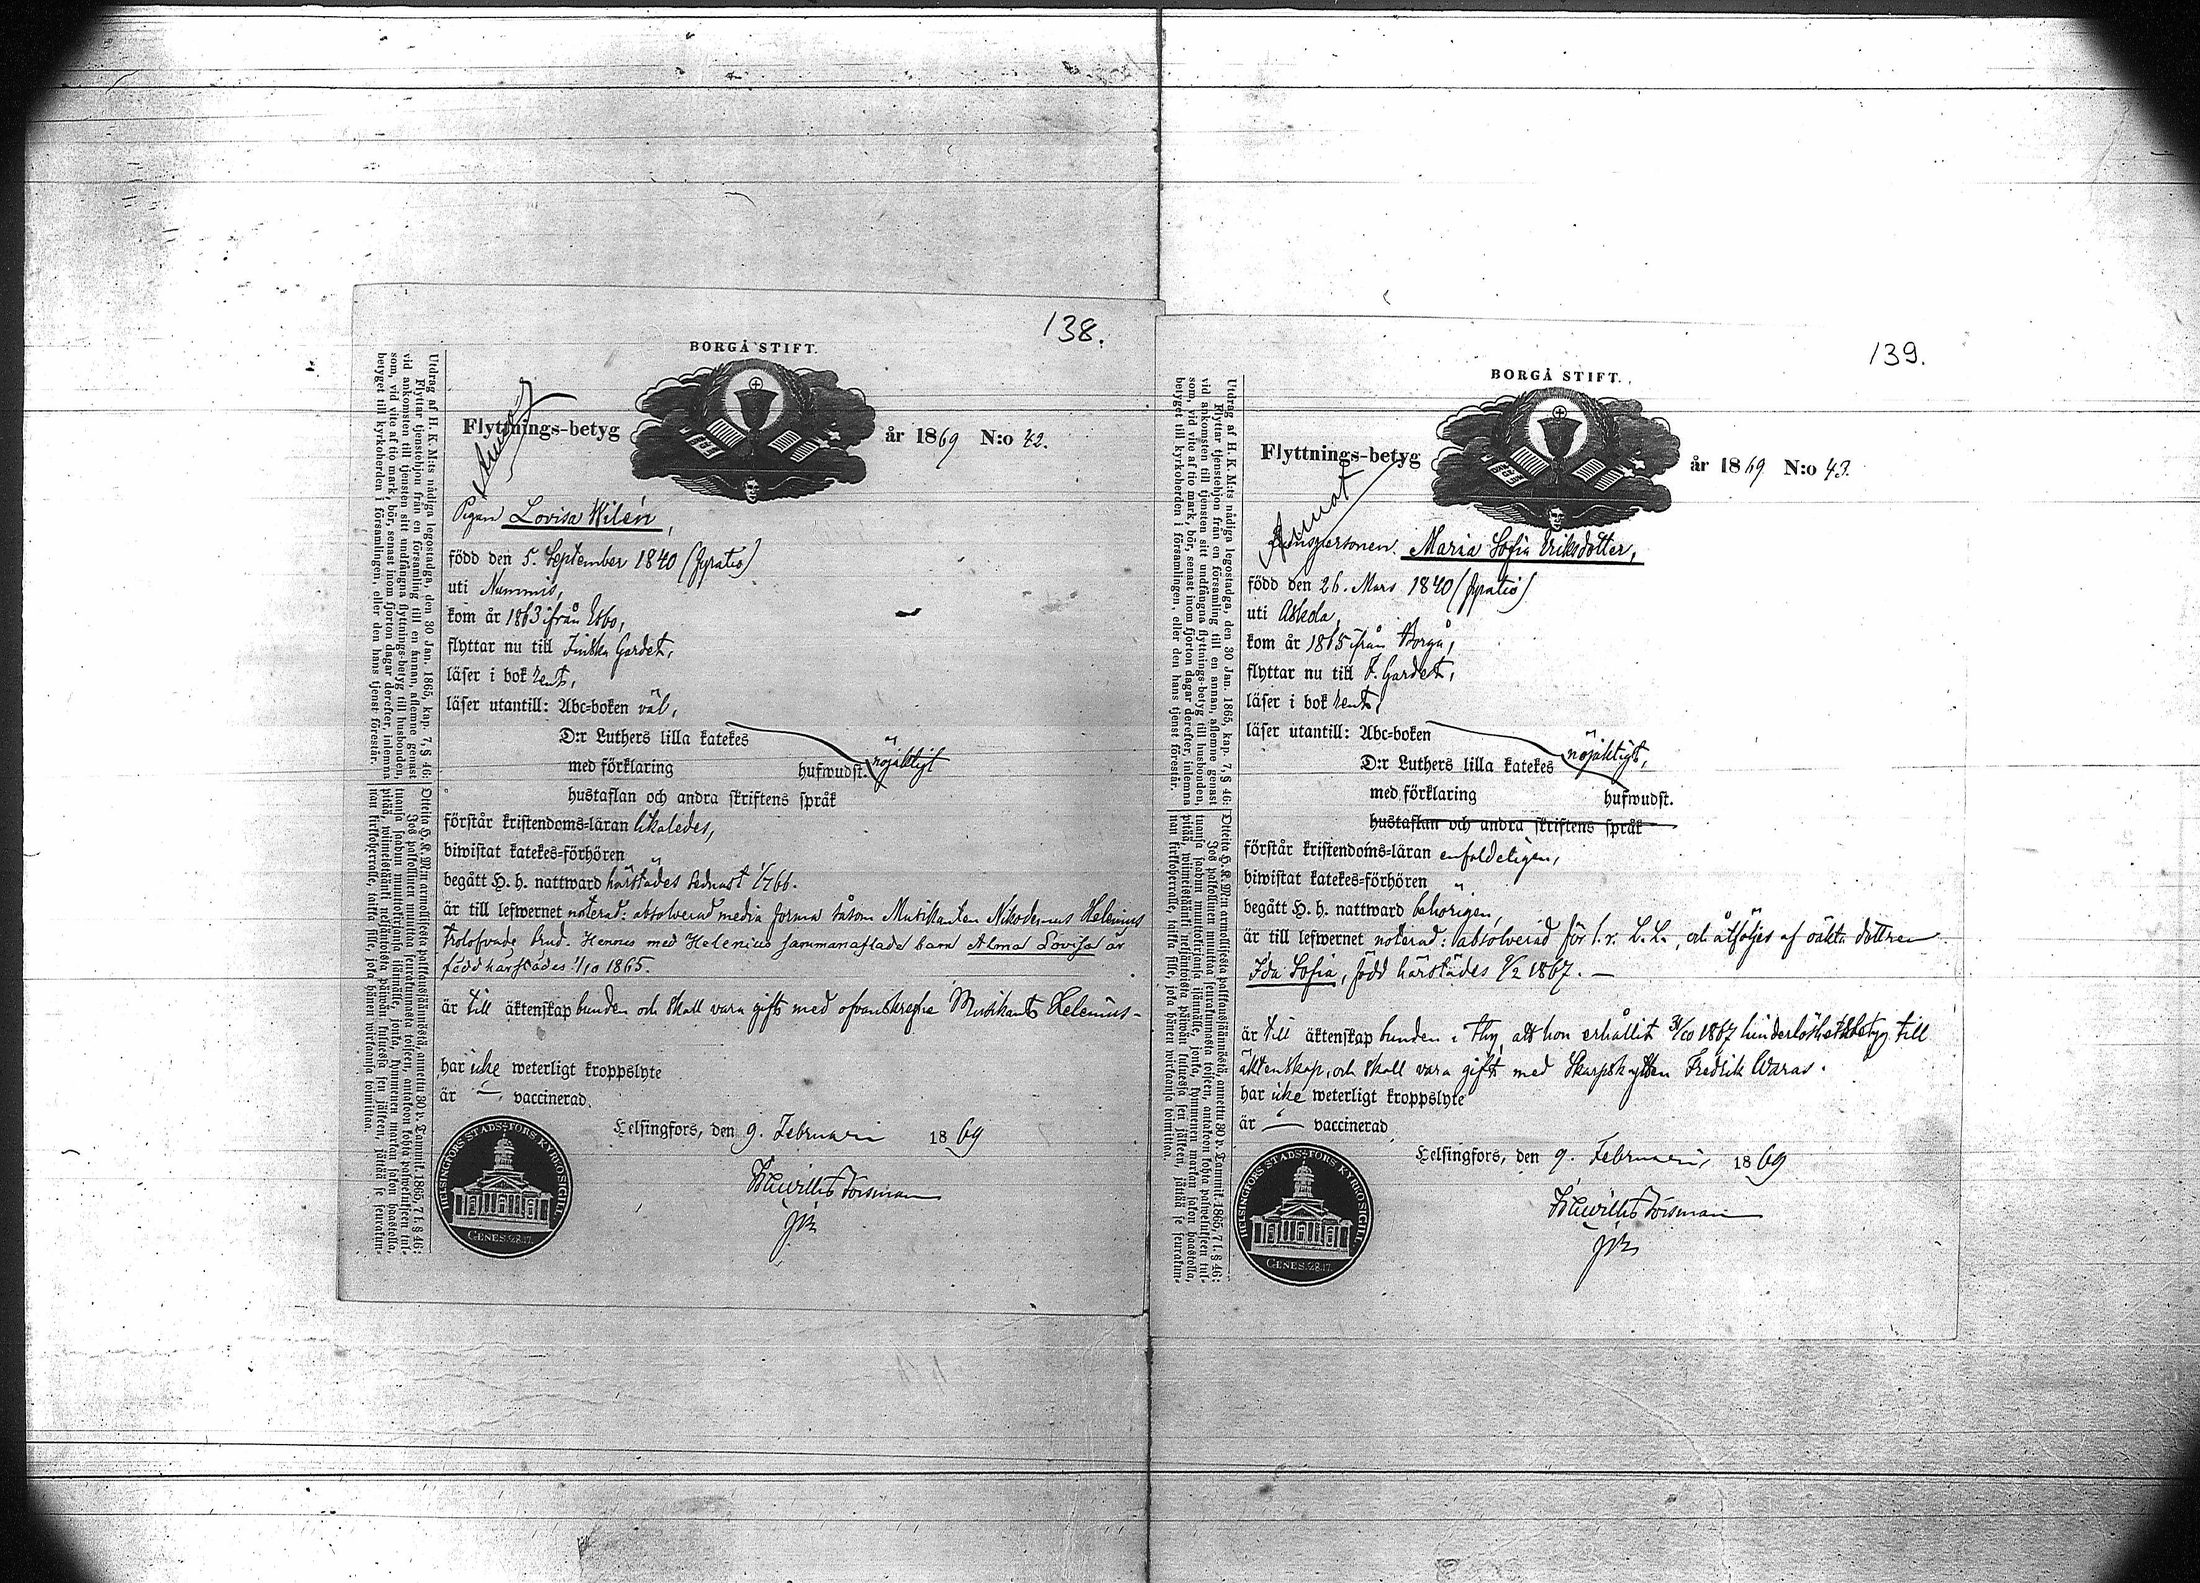 138.
BORGÅ STIFT.
Flyttnings-betyg år 1869 N:o 42.
Pigan Lovisa Wilén,
född den 5. September 1840 (gratis)
uti Nummis,
kom år 1863 ifrån Esbo,
flyttar nu till Finska Gardet,
läser i bok rent,
läser utantill: Abc-boken väl,
D:r Luthers lilla katekes
med förklaring hufwudst. nöjaktigt
hustaflan och andra skriftens språk
förstår kristendoms-läran likaledes,
biwistat katekes-förhören
begått H. h. nattward härstädes sednast 1/7 66.
är till lefwernet noterad: absolverad media forma såsom Musikanten Nikodemus Helenius
trolofvade brud. Hennes med Helenius sammanaflade barn Alma Lovisa är
född härstädes 1/10 1865.
är till äktenskap bunden och skall vara gift med ofvanskrefne Musikant Helenius -
har icke weterligt kroppslyte
är — vaccinerad.
Helsingfors, den 9. Februari 1869
HELSINGFORS STADS-FÖRS KYRKOSIGILL
GENES. 28.17.
Utdrag af H. K. M:ts nådiga legostadga, den 30 Jan. 1865, kap. 7, § 46:
Flyttar tjenstehjon från en församling till en annan, aflemne genast
vid ankomsten till tjensten sitt undfångna flyttnings-betyg till husbonden,
som, vid vite af tio mark, bör, senast inom fjorton dagar derefter, inlemna
betyget till kyrkoherden i församlingen, eller den hans tjenst förestår.
139.
BORGÅ STIFT.
Flyttnings-betyg år 1869 N:o 43.
Annat
Qvinspersonen Maria Sofia Eriksdotter,
född den 26. Mars 1840 (gratis)
uti Askola,
kom år 1865 ifrån Borgå,
flyttar nu till F. Gardet,
läser i bok rent,
läser utantill: Abc-boken
D:r Luthers lilla katekes nöjaktigt,
med förklaring hufwudst.
hustaflan och andra skriftens språk
förstår kristendoms-läran enfaldeligen,
biwistat katekes-förhören
begått H. h. nattward behörigen,
är till lefwernet noterad: absolverad för l. r. L. L., och åtföljes af oäkta dottren
Ida Sofia, född härstädes 9/2 1867. —
är till äktenskap bunden i thy, att hon erhållit 31/10 1867 hinderlöshetsbetyg till
äktenskap, och skall vara gift med Skarpskytten Fredrik Waras.
har icke weterligt kroppslyte
är — vaccinerad
Helsingfors, den 9. Februari, 1869
HELSINGFORS STADS-FÖRS KYRKOSIGILL
GENES. 28.17.
Utdrag af H. K. M:ts nådiga legostadga, den 30 Jan. 1865, kap. 7, § 46:
Flyttar tjenstehjon från en församling till en annan, aflemne genast
vid ankomsten till tjensten sitt undfångna flyttnings-betyg till husbonden,
som, vid vite af tio mark, bör, senast inom fjorton dagar derefter, inlemna
betyget till kyrkoherden i församlingen, eller den hans tjenst förestår.